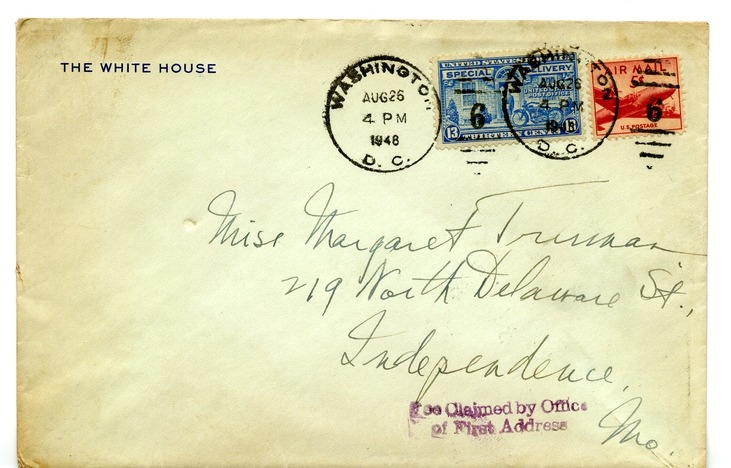 THE WHITE HOUSE
WASHINGTON
AUG 26
4 PM
1948
D. C.
UNITED STATES
SPECIAL DELIVERY
UNITED STATES
POST OFFICE
13 THIRTEEN CENTS
6
WASHINGTON
AUG 26
4 PM
1948
D. C.
AIR MAIL
5¢
U.S. POSTAGE
6
Miss Margaret Truman
219 North Delaware St.,
Independence,
Mo.
Fee Claimed by Office
of First Address